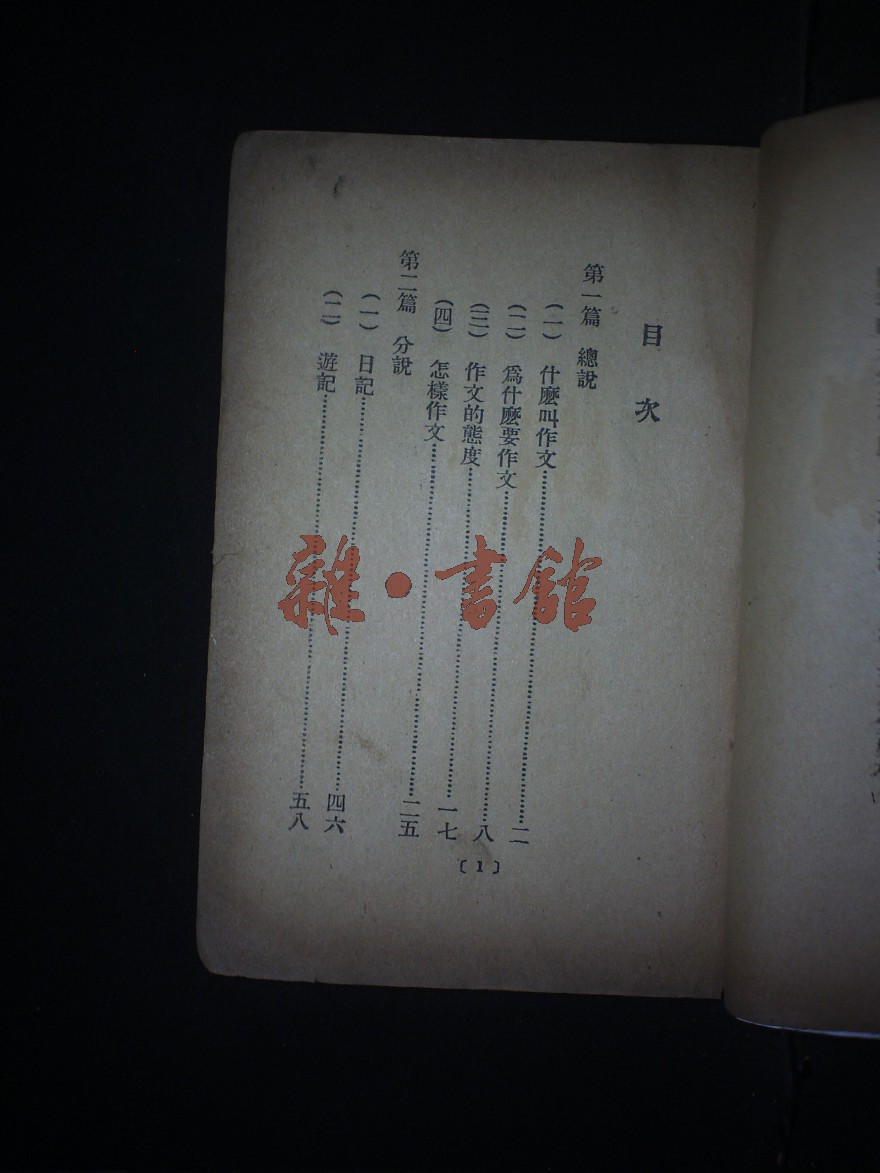 目次
第一篇 總說
(一) 什麼叫作文……二
(二) 爲什麼要作文……八
(三) 作文的態度……一七
(四) 怎樣作文……二五
第二篇 分說
(一) 日記……四六
(二) 遊記……五八
〔1〕
雜·書館